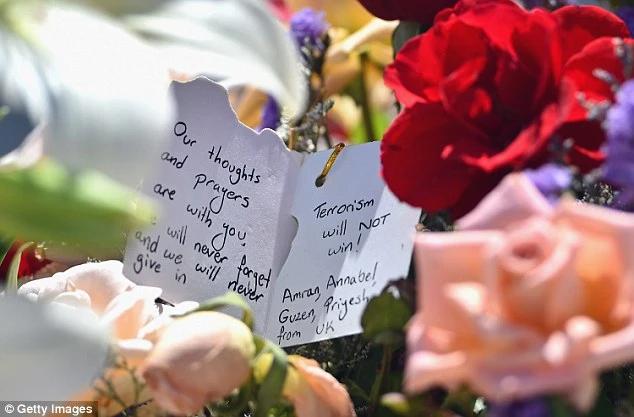 Our thoughts
and prayers
are with you,
will never forget
and we will never
give in
Terrorism
will NOT
win!
Amran, Annabel
Guzen, Priyesh
from UK
© Getty Images